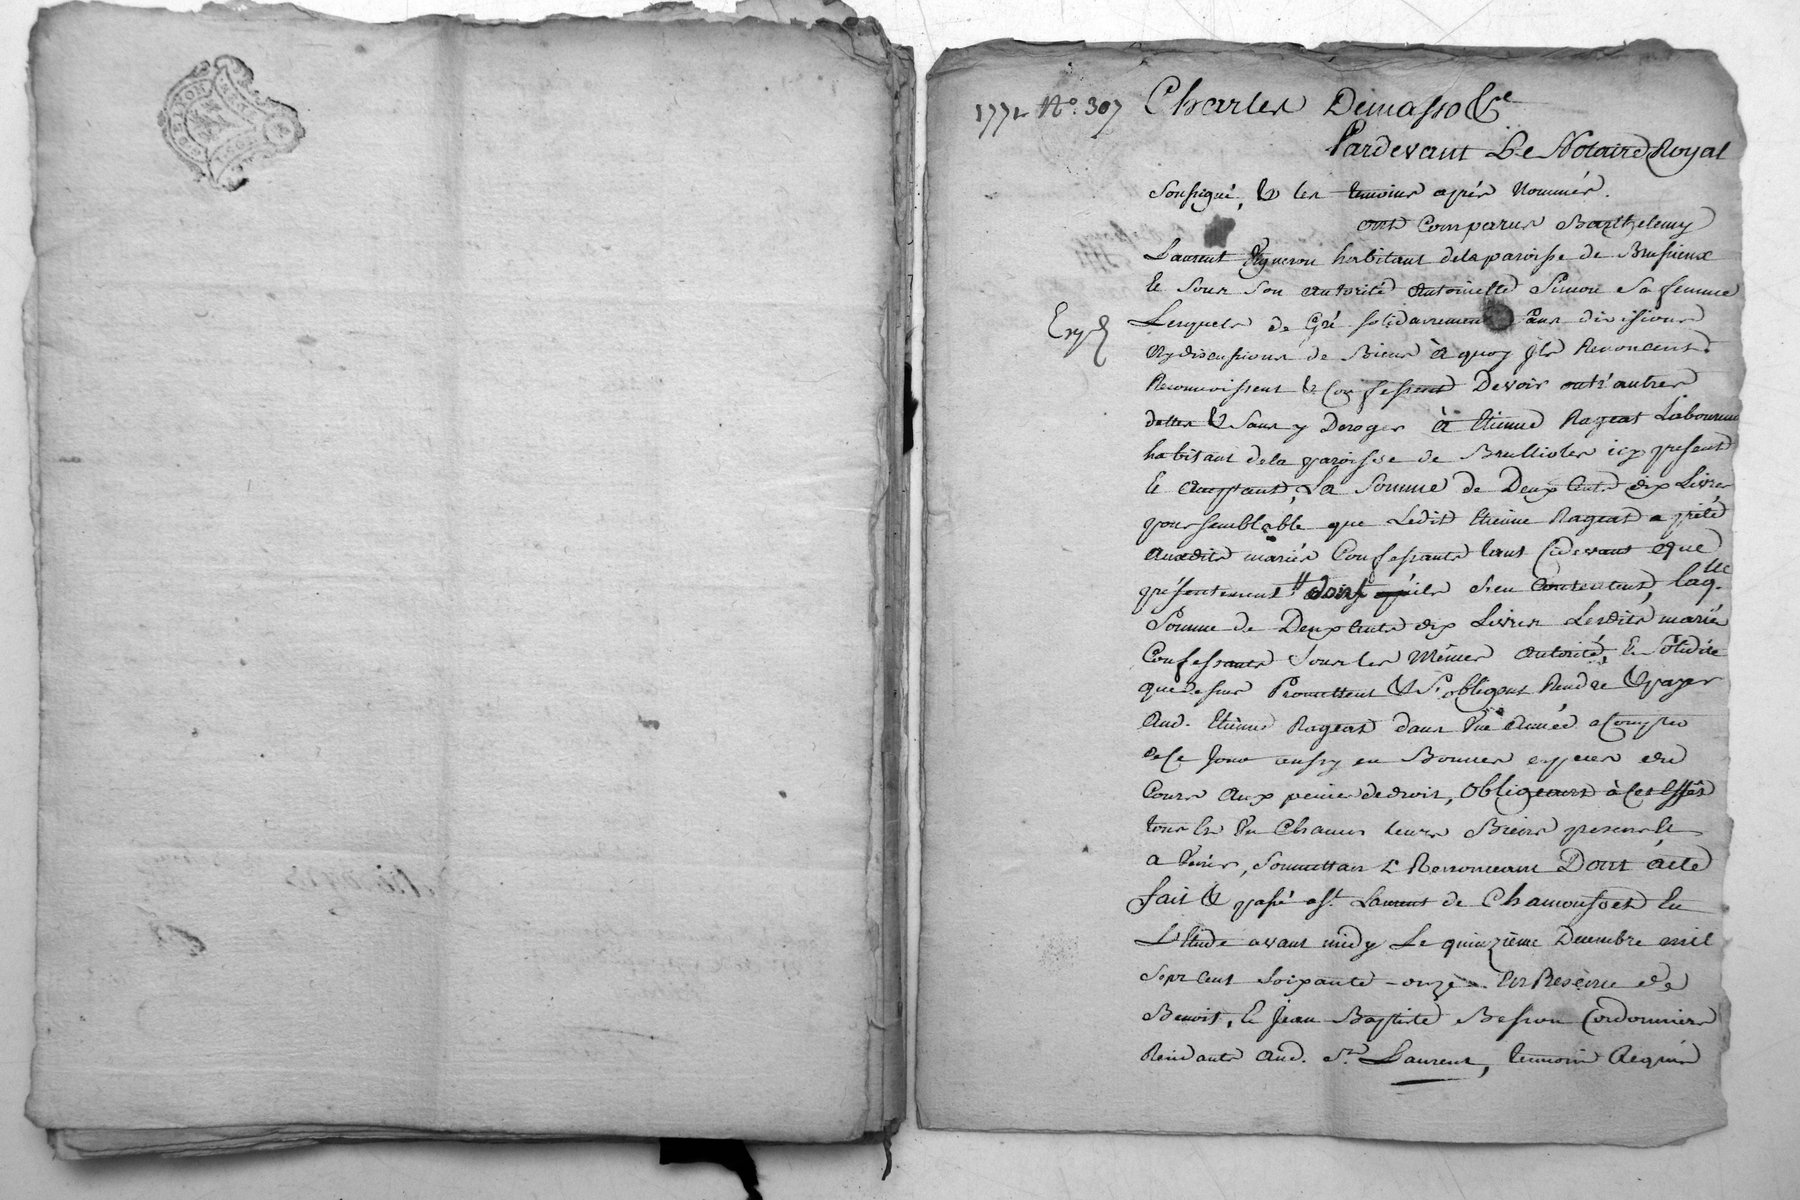 1771 N.º 307 Charles Demasso &c
Pardevant Le Notaire Royal
Soussigné, & les temoins aprés Nommés.
ont Comparus Barthelemy
Laurent Vigneron habitant dela paroisse de Brussieux
Et Sous Son autorité Antoinette Simon Sa femme
Lesquels de Gré Solidairement Sans divisions
Ny discussions de Biens à quoy jls Renoncent.
Reconnoissent & Confessent Devoir outr'autres
dettes & Sans y Deroger à Etienne Rageat Laboureur
habitant dela paroisse de Brullioles icy present
Et acceptant, La Somme de Deux Cents dix Livres
pour semblable que Ledit Etienne Rageat a prété
auxdits mariés Confessants tant Cidevant que
présentement dont ils s'en Contentent, laq.lle
Somme de Deux Cents dix Livres Lesdits mariés
Confessants Sous les Mêmes autorité, Et Solidité
que dessus Promettent & S'obligent Rendre & payer
Aud. Etienne Rageat dans Une Année a Compter
de Ce Jour aussy en Bonnes especes du
Cours Aux peines de droit, Obligeant à Ces Effets
tous Et Un Chacun leurs Biens presens Et
a Venir, Soumettans & Renonceans Dont acte
fait & passé a S.t Laurent de Chamousset En
L'Etude avant midy Le quinzième Decembre mil
Sept Cent Soixante-onze En Presence de
Benoit, Et Jean Baptiste Besson Cordonniers
Residants Aud. S.t Laurent, temoins Requis